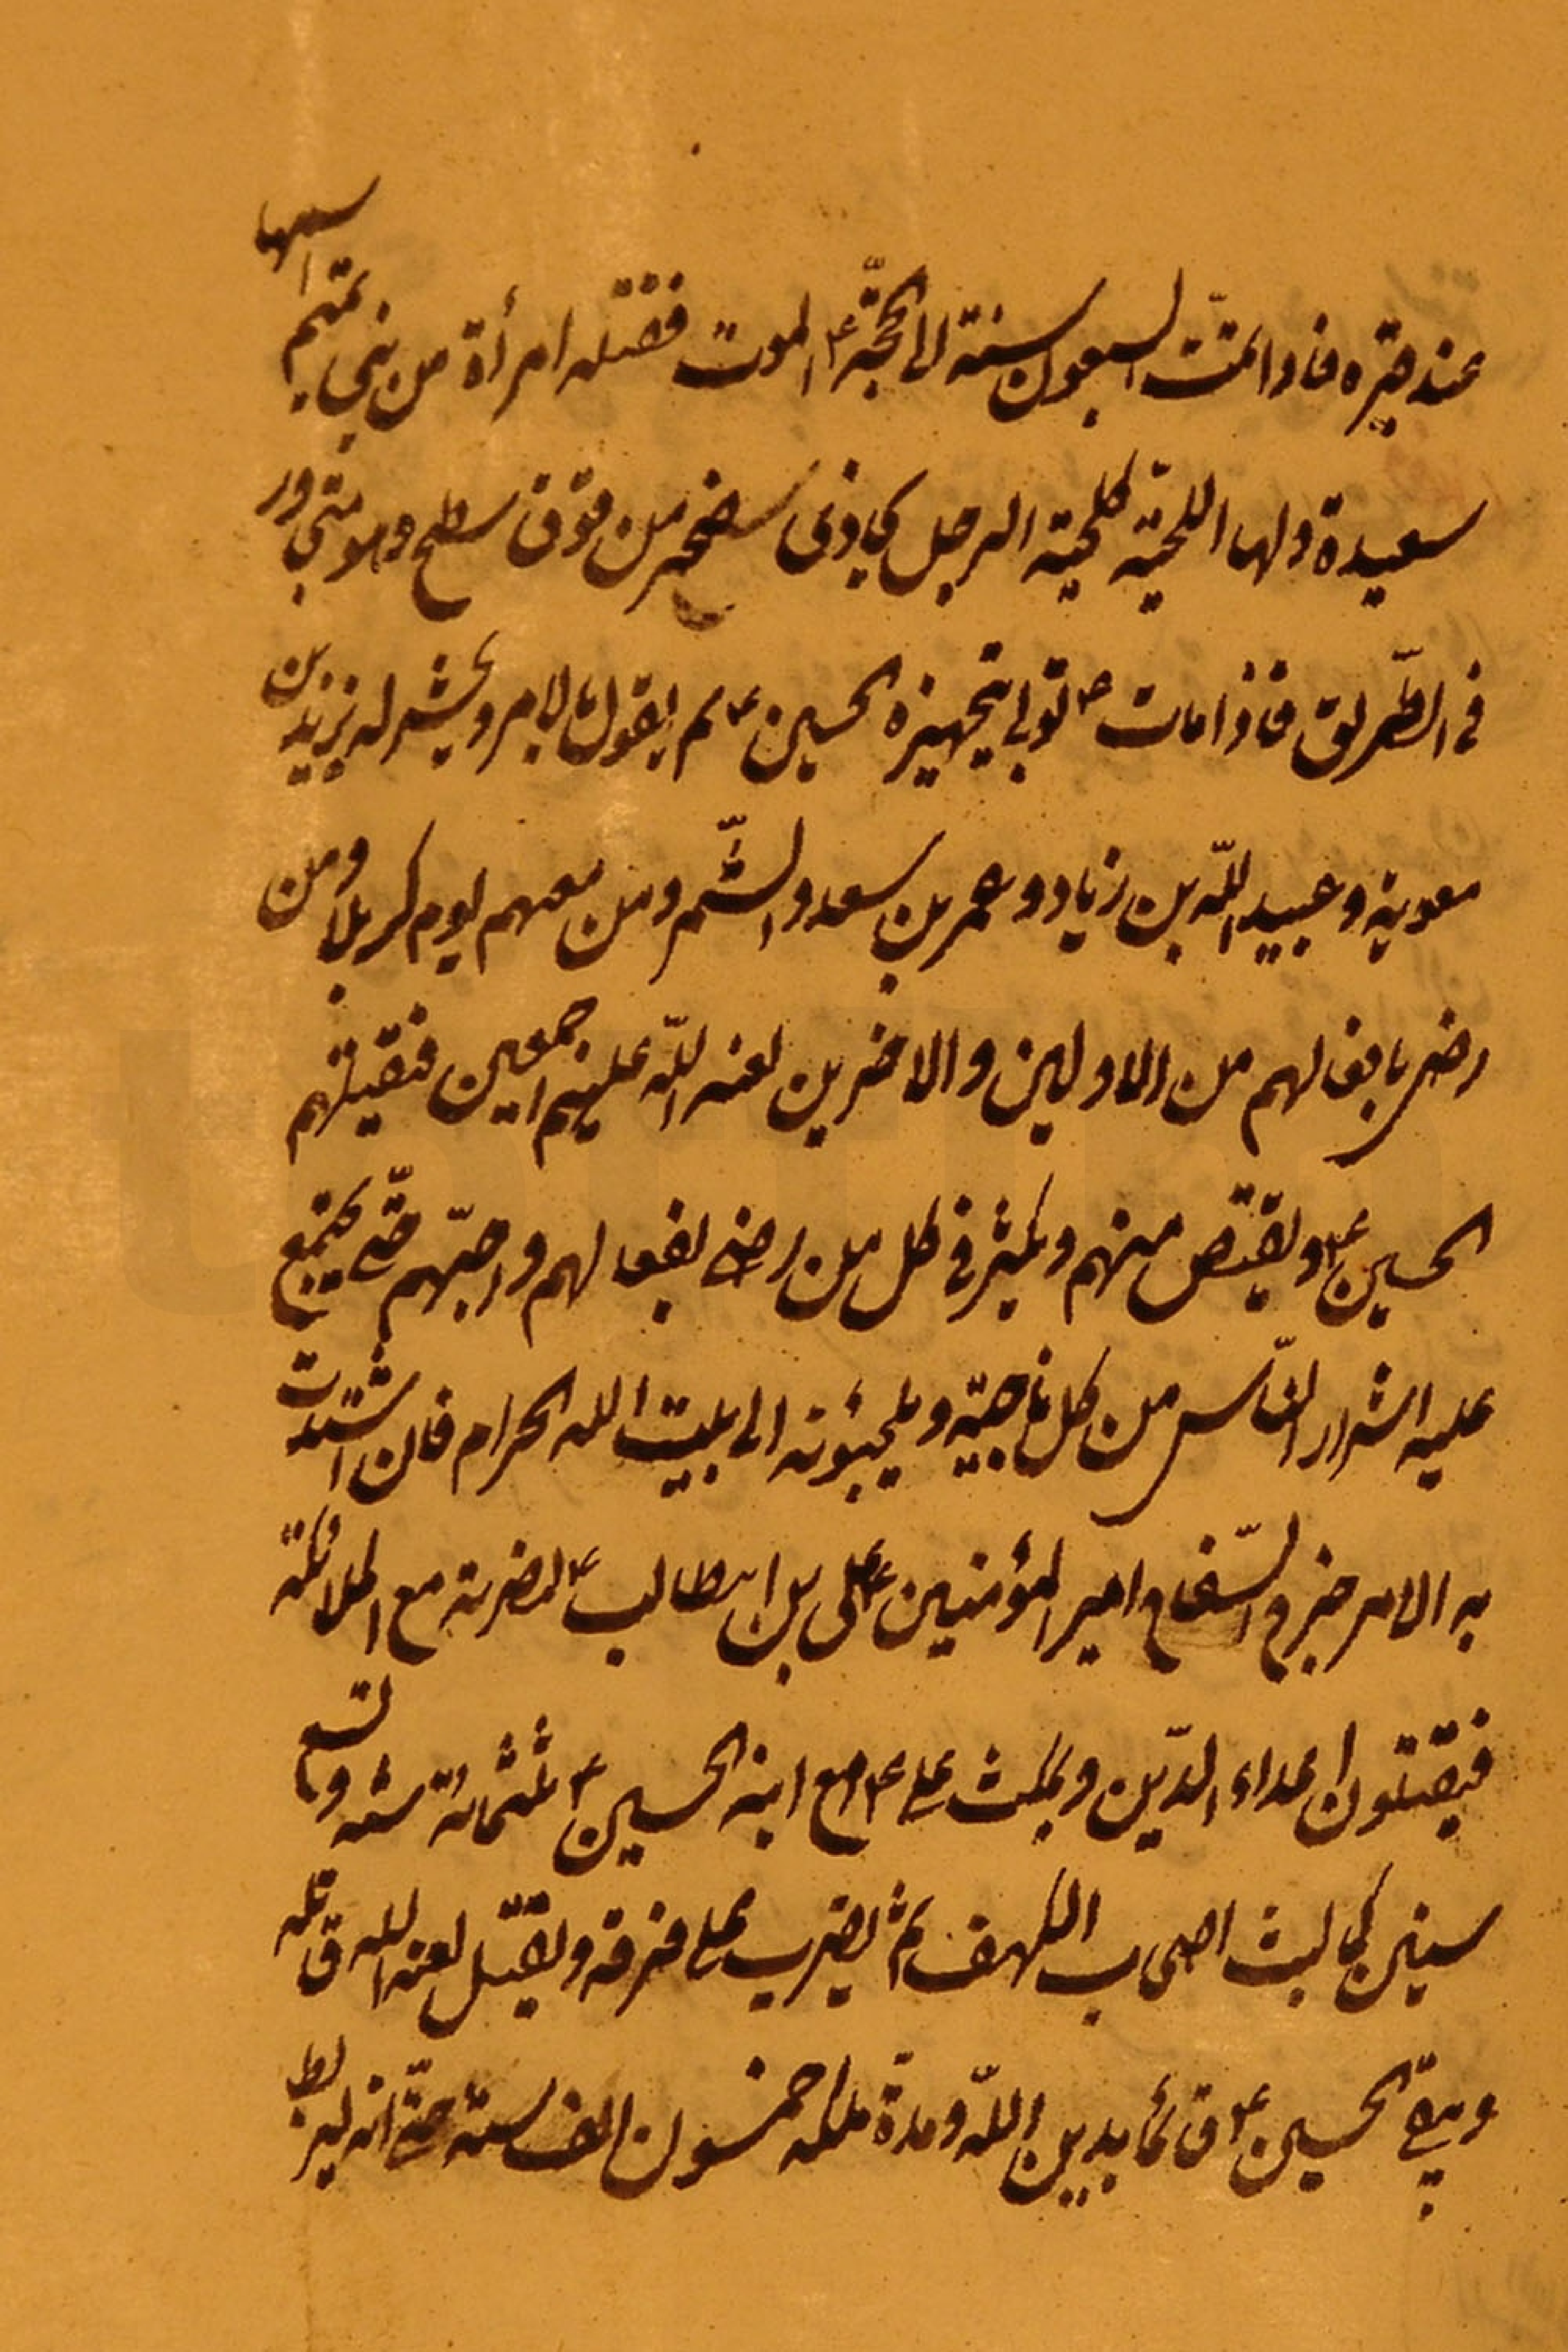 عند قبره فاذا تمت السبعون سنة اتى الحجّة ع الموت فتقتله امرأة من بني تميم اسمها
سعيدة ولها اللحية كلحية الرجل بجاون صخر من فوق سطح وهو متجاوز
في الطّريق فاذا مات ع تولى تجهيزه الحسين ع ثم يقوم بالامر ويحشر له يزيد بن
معوية وعبيد اللّه بن زياد وعمر بن سعد والشّمر ومن معهم يوم كربلا ومن
رضى بافعالهم من الاولين والاخرين لعنه اللّه عليهم اجمعين فيقتلهم
الحسين ع ويقتص منهم ويكثر في كل من رضى بفعالهم واحبّهم حتّى يجتمع
عليه اشرار النّاس من كل ناحية ويلجئونه الى بيت الله الحرام فان اشتدت
به الامر خرج السّفاح امير المؤمنين على بن ابيطالب ع لنصرته مع الملائكة
فيقتلون اعداء الدّين ويمكث على ع مع ابنه الحسين ع ثلثمائة سنة وتسع
سنين كما لبث اصحاب الكهف ثم يضرب على قرنه ويقتل لعنه الله قاتله
ويبقى الحسين ع قائما بدين اللّه ومدة ملكه خمسون الف سنة حتّى انه ليربط